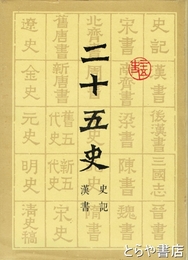 史記
漢書
後漢書
三國志
晉書
宋書
南齊書
梁書
陳書
魏書
北齊書
二十五史
史記
漢書
舊唐書
新唐書
舊五代史
新五代史
宋史
遼史
金史
元史
明史
清史稿
とらや書店